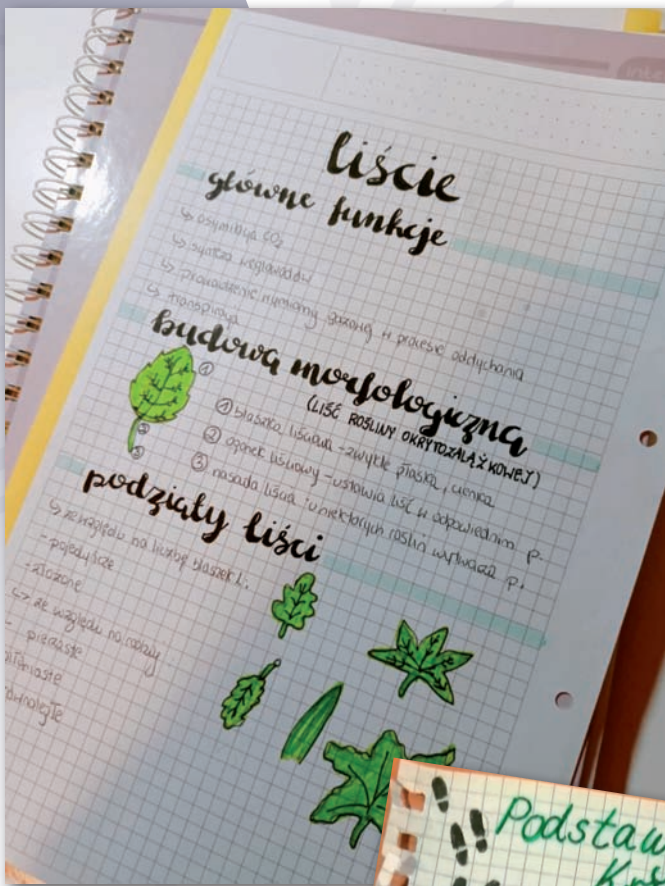 liście
główne funkcje
↳ asymilacja CO₂
↳ synteza węglowodanów
↳ prowadzenie wymiany gazowej w procesie oddychania
↳ transpiracja
budowa morfologiczna
(LIŚĆ ROŚLINY OKRYTOZALĄŻKOWEJ)
①
②
③
① blaszka liściowa - zwykle płaska, cienka
② ogonek liściowy - ustawia liść w odpowiednim p.
③ nasada liścia : u niektórych roślin wytwarza p.
podziały liści
↳ ze względu na liczbę blaszek l.
- pojedyncze
- złożone
↳ ze względu na
pierzaste
Podstaw